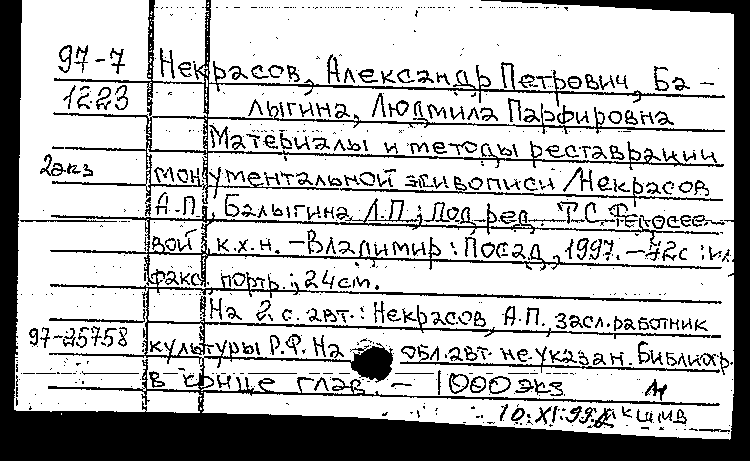 97-7 Некрасов, Александр Петрович, Ба-
1223 лыгина, Людмила Парфировна
Материалы и методы реставрации
2экз монументальной живописи /Некрасов
А.П., Балыгина Л.П.; Под ред. Т.С. Федосее-
вой, к.х.н. -Владимир: Посад, 1997. -42с: ил.
факс, портр.; 24см.
На 2 с. авт.: Некрасов, А.П., засл. работник
97-25758 культуры Р.Ф. На обл. авт. не указан. Библиогр.
в конце глав. - 1000 экз
10.XI.99